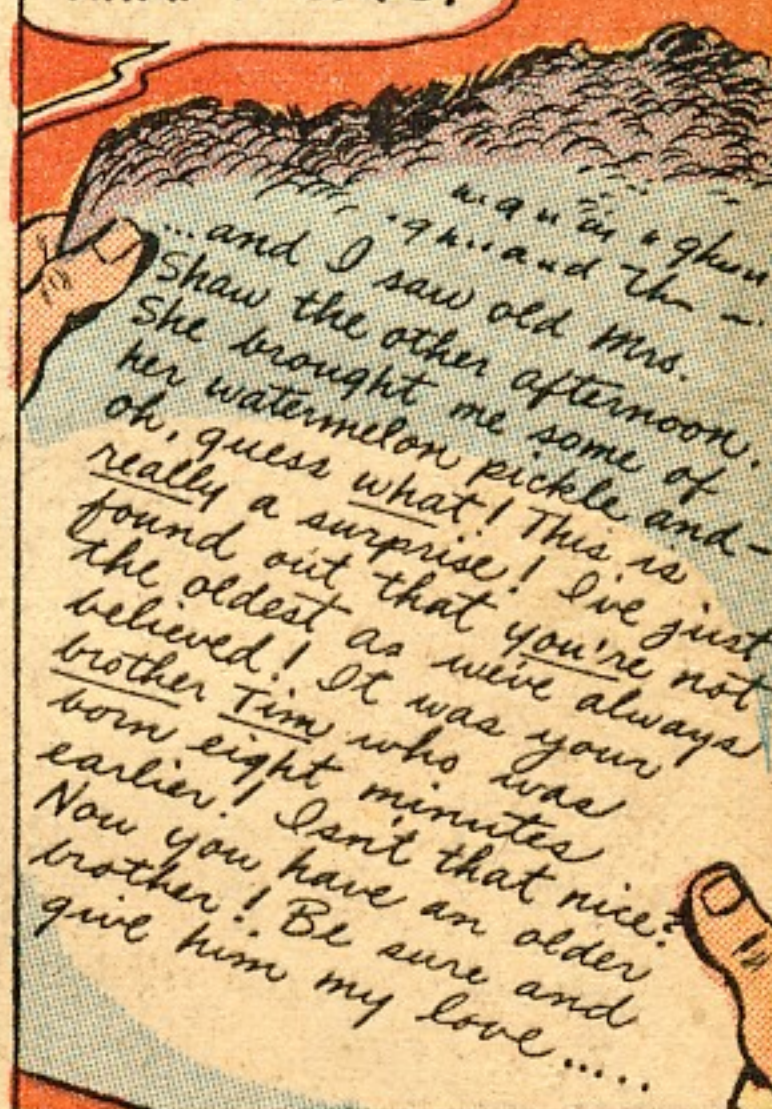 ...and I saw old Mrs.
Shaw the other afternoon.
She brought me some of
her watermelon pickle and-
oh, guess what! This is
really a surprise! I've just
found out that you're not
the oldest as we've always
believed! It was your
brother Tim who was
born eight minutes
earlier! Isn't that nice?
Now you have an older
brother! Be sure and
give him my love.....